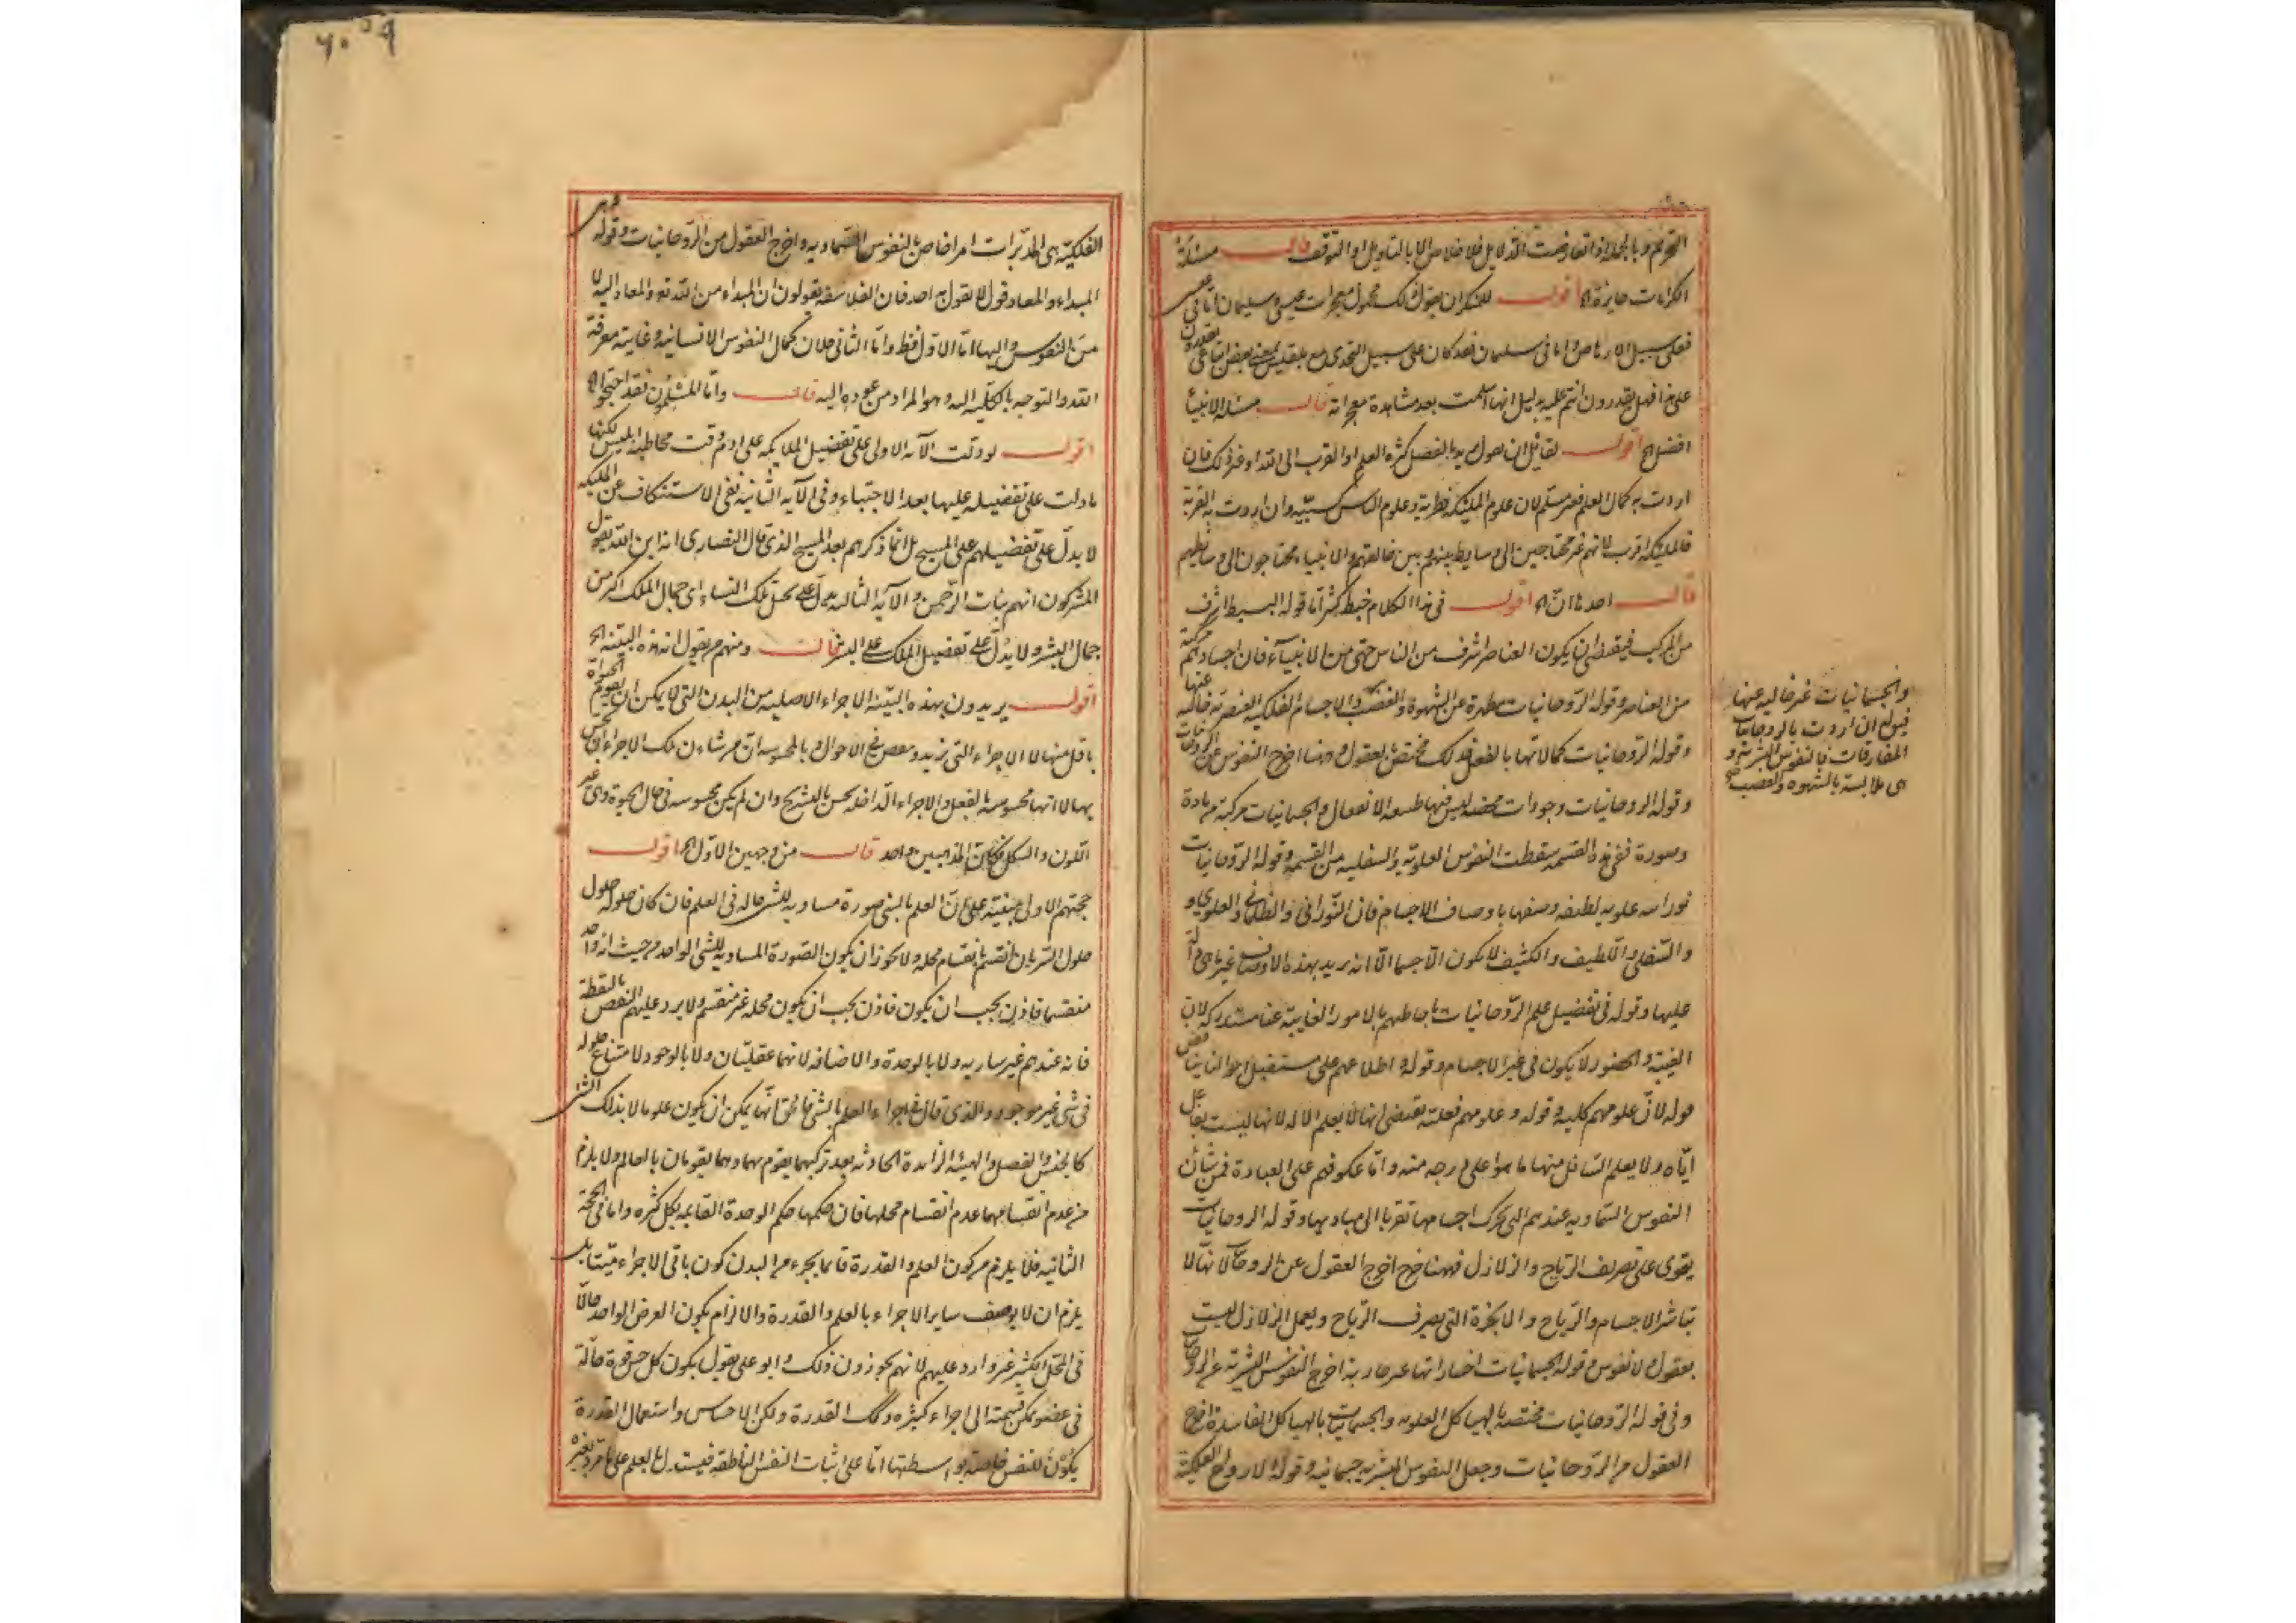 التحريم وبالجملة اذا تعارضت الدلايل فلا خلاص الا بالتاويل او التوقف قال مسئلة
الكرامات جايزة الخ اقول للمنكر ان يقول ذلك محمول معجزات عيسى وسليمان اما في عيسى
فعلى سبيل الارهاص واما في سليمان فقد كان على سبيل التحدي مع بلقيس بعض اتباعي يقدرون
على هذا فهل يقدرون انتم عليه بدليل انها اسلمت بعد مشاهدة معجزاته قال مسئلة الانبياء
افضل الخ اقول لقائل ان يقول تريد بالفضل كثرة العلم او القرب الى الله او غير ذلك فان
اردت به كمال العلم فغير مسلم لان علوم الملئكة فطرية وعلوم الناس كسبية وان اردت به القربة
فالملئكة اقرب لانهم غير محتاجين الى وسايط بينهم وبين خالقهم والانبياء محتاجون الى وسايطهم
قال احدها ان الخ اقول في هذا الكلام خبط كثير اما قوله البسيط اشرف
من المركب فيقتضي ان يكون العناصر اشرف من الناس حتى من الانبياء فان اجسادهم مركبة
من العناصر وقوله الروحانيات مطهرة عن الشهوة والغضب والاجسام الفلكية العنصرية خالية عنها
وقوله الروحانيات كمالاتها بالفعل فذلك مختص بالعقول وههنا اخرج النفوس عن الروحانيات
وقوله الروحانيات وجودات محضة ليس فيها طبيعة الانفعال والجسمانيات مركبة من مادة
وصورة ففي هذه القسمة سقطت النفوس العلوية والسفلية من القسمة وقوله الروحانيات
نورانية علوية لطيفة وصفها باوصاف الاجسام فان النوراني والظلماني والعلوي و
والسفلي واللطيف والكثيف لا يكون الا جسما الا انه يريد بهذه الاوصاف غير ما هي دالة
عليها وقوله في تفضيل علم الروحانيات باحاطتهم بالامور الغايبة عنا مستدرك لان
الغيبة والحضور لا يكون في غير الاجسام وقوله واطلاعهم على مستقبل احوالنا يناقض
قوله لان علومهم كلية وقوله وعلومهم فعلية يقتضي انها لا يعلم الاله لانها ليست بفاعل
اياه ولا يعلم السافل منها ما هو اعلى درجة منه واما عكوفهم على العبادة فمن شان
النفوس السماوية عندهم التي تحرك اجسامها تقربا الى مباديها وقوله الروحانيات
يقوى على تصريف الرياح والزلازل فههنا خرج اخرج العقول عن الروحانيات لانها لا
تباشر الاجسام والرياح والابخرة التي يصرف الرياح ويعمل الزلازل ليست
بعقول ولا نفوس وقوله الجسمانيات اختياراتها اخرج النفوس البشرية عن الروحانيات
وفي قوله الروحانيات مختصة بالهياكل العلوية والجسمانيات بالهياكل الفاسدة اخرج
العقول من الروحانيات وجعل النفوس البشرية جسمانية وقوله الارواح الفلكية
والجسمانيات غير خالية عنها
فيقع ان اردت بالروحانيات
المفارقات فالنفوس البشرية و
هي ملابسة بالشهوة والغضب صح
الفلكية هي المدبرات امرا خاص بالنفوس السماوية واخرج العقول من الروحانيات وقوله هي
المبداء والمعاد قول لا يقول به احد فان الفلاسفة يقولون ان المبداء من الله تع والمعاد اليه لا
من النفوس واليها اما الاول فظ واما الثاني فلان كمال النفوس الانسانية وغايته معرفة
الله والتوجه بالكلية اليه وهو المراد من عوده اليه قال واما المسلمون فقد احتجوا الخ
اقول لو دلت الآية الاولى على تفضيل الملايكة على ادم وقت مخاطبة ابليس لكنها
ما دلت على تفضيله عليها بعد الاجتباء وفي الآية الثانية نفي الاستنكاف عن الملئكة
لا يدل على تفضيلهم على المسيح بل انما ذكرهم بعد المسيح الذي قال النصارى انه ابن الله لقول
المشركون انهم بنات الرحمن والآية الثالثة تدل على تخيل تلك النساء اي جمال الملك اكثر من
جمال البشر ولا يدل على تفضيل الملك على البشر قال ومنهم من يقول انه هذه البنية الخ
اقول يريدون بهذه البنية الاجزاء الاصلية من البدن التي لا يمكن ان يقوم الحيوة
باقل منها لا الاجزاء التي تزيد وتنقص في الاحوال والمحسوسة ان من شان تلك الاجزاء ان يحس
بها لا انها محسوسة بالفعل والاجزاء الداخلة تحس بالتشريح وان لم يكن محسوسة في حال الحيوة وهي غير
اللون والشكل فكان المذهبين واحد قال من وجهين الاول الخ اقول
حجتهم الاولى مبنية على ان العلم بالشيء صورة مساوية للشيء حالة في العلم فان كان حلوله حلول
حلول السريان انقسم بانقسام محله ولا يجوز ان يكون الصورة المساوية للشيء الواحد من حيث انه واحد
منقسما فاذن يجب ان يكون فاذن يجب ان يكون محله غير منقسم ولا يرد عليهم النقض بالنقطة
فانه عندهم غير سارية ولا بالوحدة والاضافة لانهما عقليتان ولا بالوجود لامتناع حلوله
في شيء غير موجود والذي قال في اجزاء العلم بالشيء فالحق انها يمكن ان يكون علوما لا بذلك الشيء
كالجنس والفصل والهيئة الزايدة الحادثة بعد تركيبهما يقوم بهما وهما يقومان بالعالم ولا يلزم
من عدم انقسامهما عدم انقسام محلها فان حكمها حكم الوحدة القايمة بكل كثرة واما في الحجة
الثانية فلا يلزم من كون العلم والقدرة قائما بجزء من البدن كون باقي الاجزاء ميتا بل
يلزم ان لا يوصف ساير الاجزاء بالعلم والقدرة والالزام بكون العرض الواحد حالا
في المحل الكثير غير وارد عليهم لانهم يجوزون ذلك وابو علي يقول بكون كل حس قوة حالة
في عضو يمكن قسمته الى اجزاء كثيرة وكذلك القدرة ولكن الاحساس واستعمال القدرة
يكون للنفس خاصة بواسطتها اما على اثبات النفس الناطقة فيستدل بالعلم على ما مر وبغيره